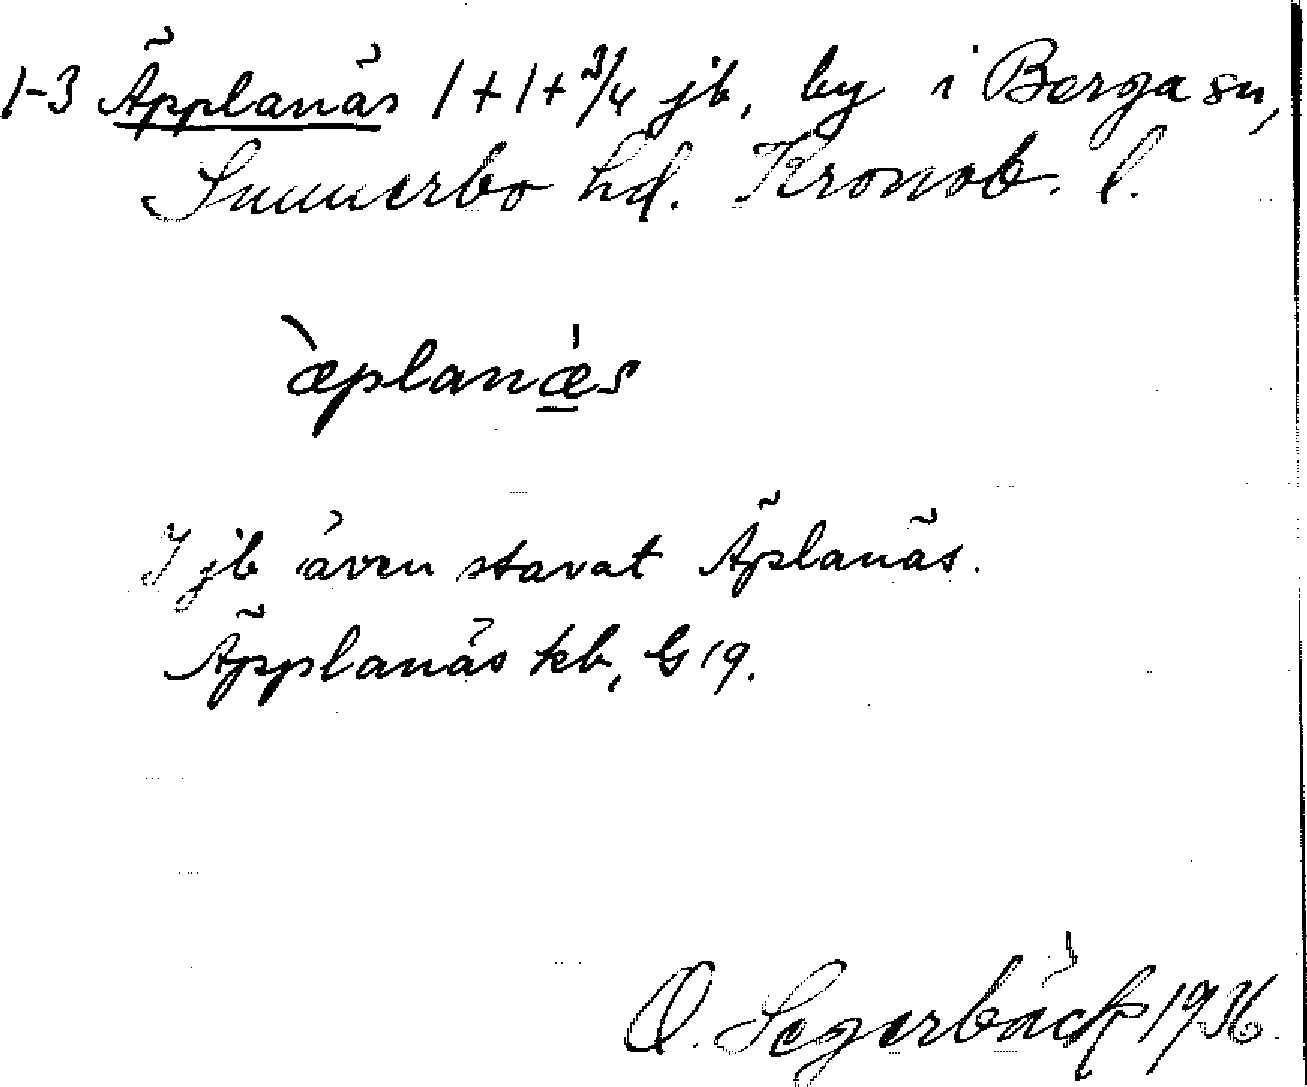 1-3 Äpplanäs 1+1+3/4 jb, by i Berga sn,
Sunnerbo hd. Kronob. l.
æ̀planǽ̱s
I jb även stavat Äplanäs.
Äpplanäs kb, G 19.
O. Segerbäck 1936.